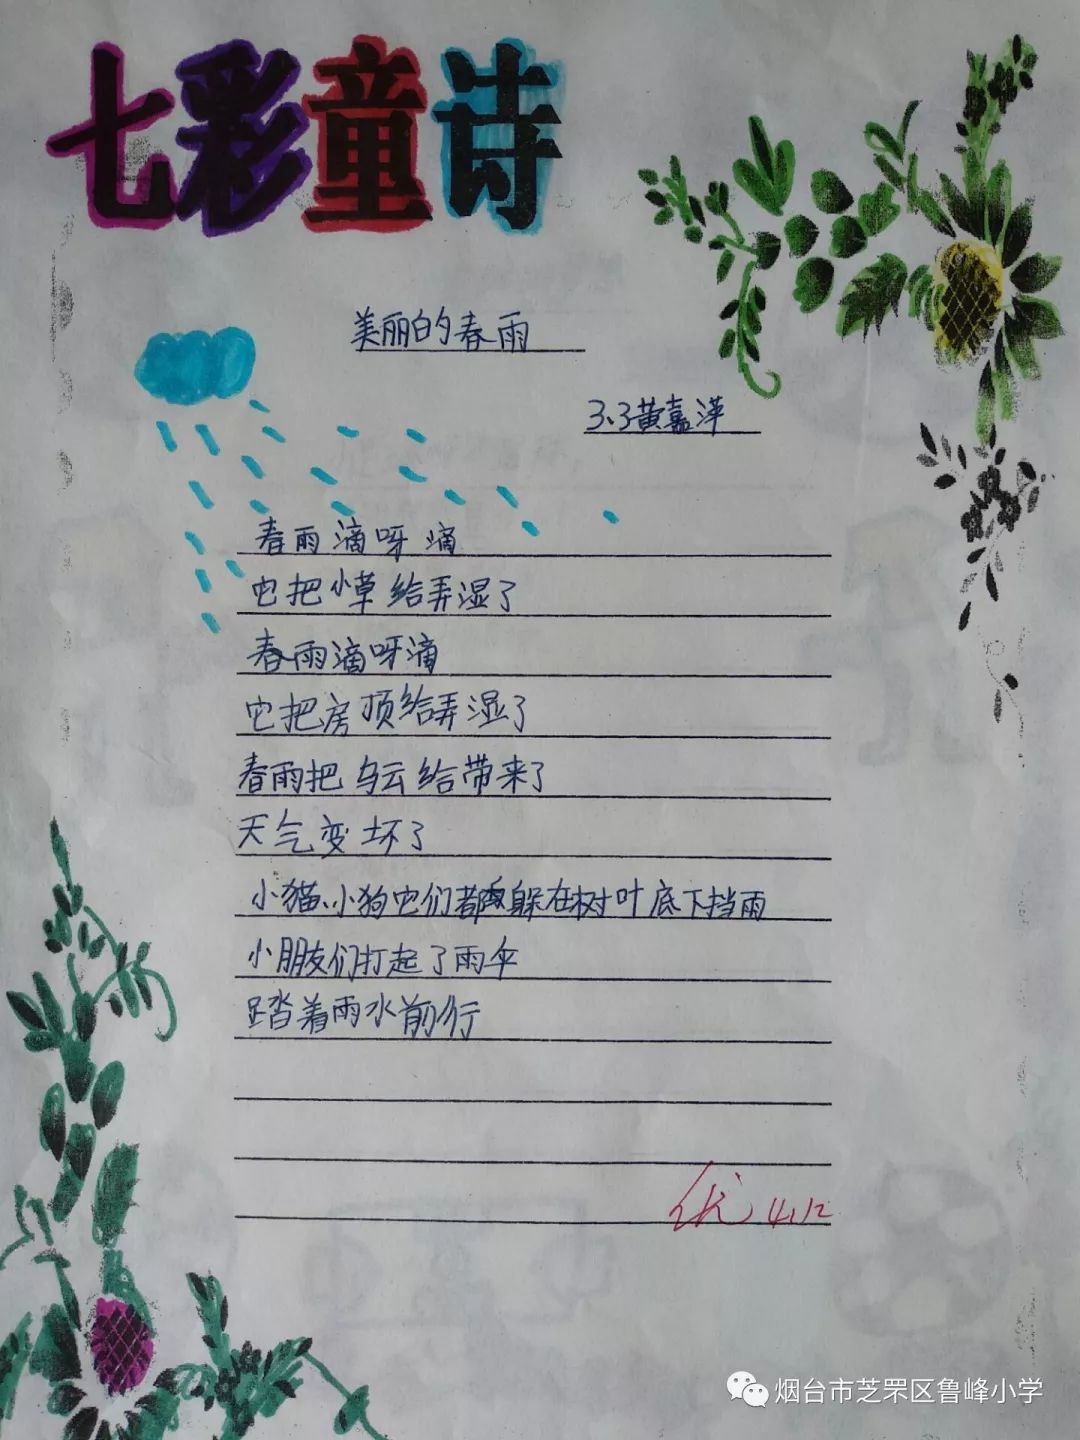 七彩童诗
美丽的春雨
3.3黄嘉萍
春雨滴呀滴
它把小草给弄湿了
春雨滴呀滴
它把房顶给弄湿了
春雨把乌云给带来了
天气变坏了
小猫、小狗它们都躲在树叶底下挡雨
小朋友们打起了雨伞
踏着雨水前行
优 4.12
烟台市芝罘区鲁峰小学